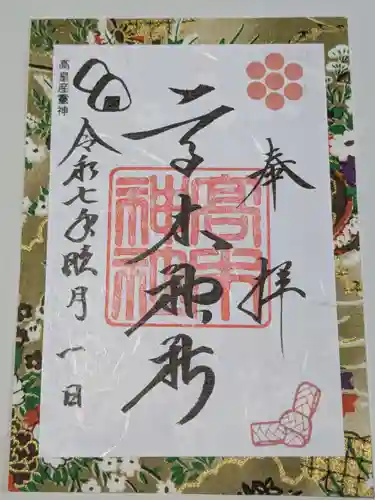 奉拝
高木神社
高木
神社
令和七年睦月一日
高皇産靈神